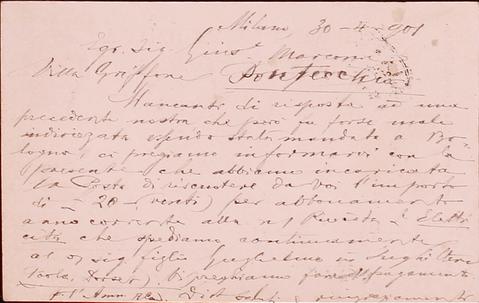 Milano, 30-4-901
Egr. Sig. Gius. Marconi
Villa Griffone Pontecchio
Mancanti di risposta ad una
precedente nostra che però fu forse male
indirizzata essendo stata mandata a Bo-
logna, ci pregiamo informarvi con la
presente che abbiamo incaricata
la Posta di riscuotere da voi l'importo
di - 20 - (venti) per abbonamento
anno corrente alla n/ Rivista - L'Elettri
cità che spediamo continuamente
al di sig figlio Guglielmo in Inghilterra
Vi preghiamo pagamento
Dist. saluti e ringraziamenti